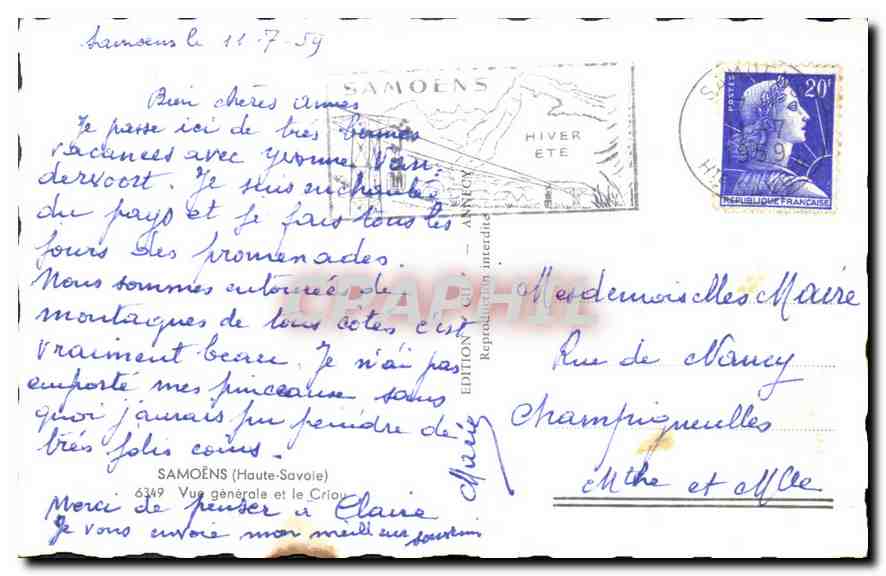 Samoens le 11-7-59
Bien chères amies
Je passe ici de très bonnes
vacances avec Yvonne Van-
dervoort. Je suis enchantée
du pays et je fais tous les
jours des promenades.
Nous sommes entourées de
montagnes de tous côtés c'est
vraiment beau. Je n'ai pas
emporté mes pinceaux sans
quoi j'aurais pu peindre de
très jolis coins.
SAMOËNS (Haute-Savoie)
6349 Vue générale et le Criou
Merci de penser à Claire
Je vous envoie mon meilleur souvenir
Marie
SAMOËNS
HIVER
ETE
EDITION GIL - ANNECY
Reproduction interdite
CPAPHIL
POSTES
20F
REPUBLIQUE FRANÇAISE
Mesdemoiselles Maire
Rue de Nancy
Champigneulles
Mthe et Mlle